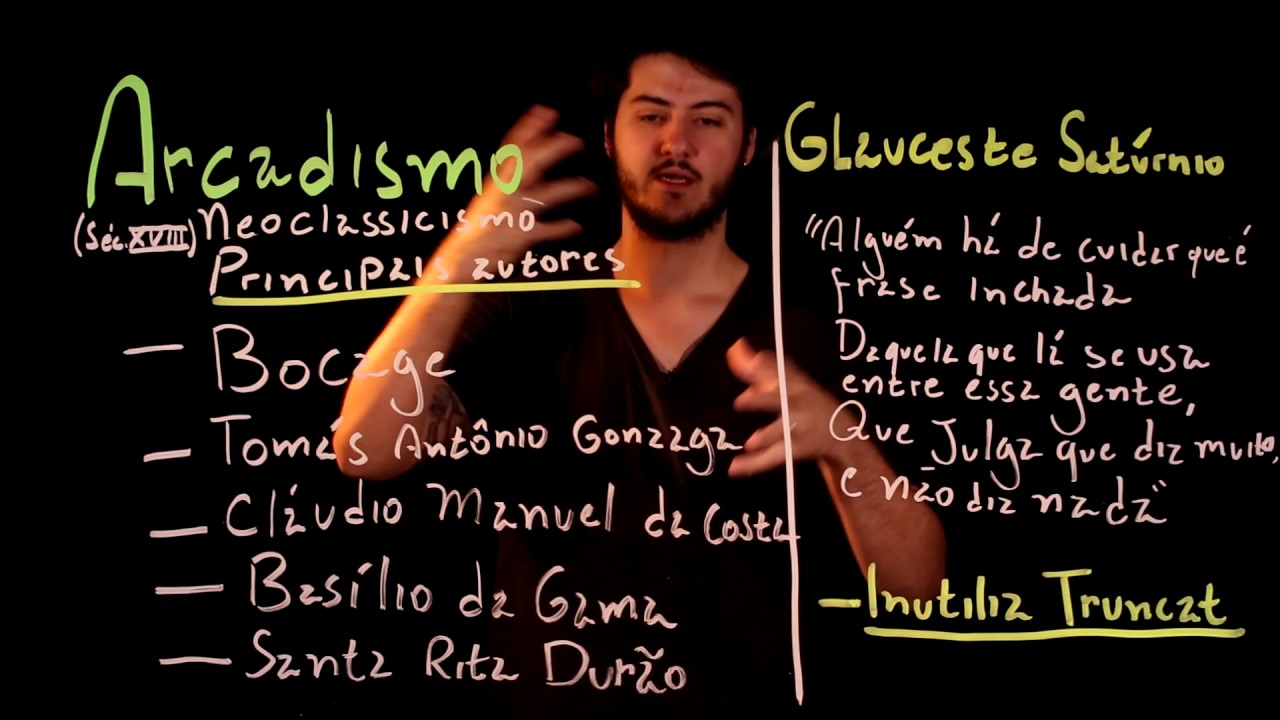 Arcadismo
(Séc. XVIII) Neoclassicismo
Principais autores
— Bocage
— Tomás Antônio Gonzaga
— Cláudio Manuel da Costa
— Basílio da Gama
— Santa Rita Durão
Glauceste Satúrnio
"Alguém há de cuidar que é
frase inchada
Daquela que lá se usa
entre essa gente,
Que Julga que diz muito,
e não diz nada"
— Inutilia Truncat